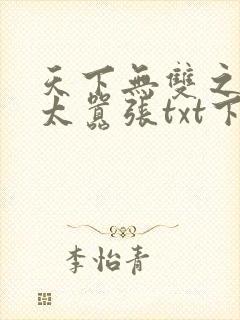 天下無雙之
太囂張txt下
李怡青